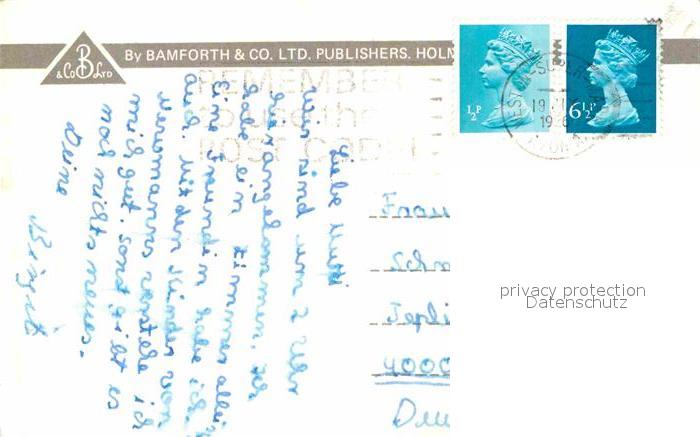 By BAMFORTH & CO. LTD. PUBLISHERS, HOLM
& Co B LTD
REMEMBER
to use the
POST CODE
½P
6½P
Liebe Mutti
wir sind um 2 Uhr
hier angekommen. Ich
habe ein Zimmer allein
Eine Freundin habe ich
auch. Mit den Kindern von
verstehe ich
mich gut. sonst gibt es
noch nichts neues.
Deine
Birgit
Frau
4000
privacy protection
Datenschutz